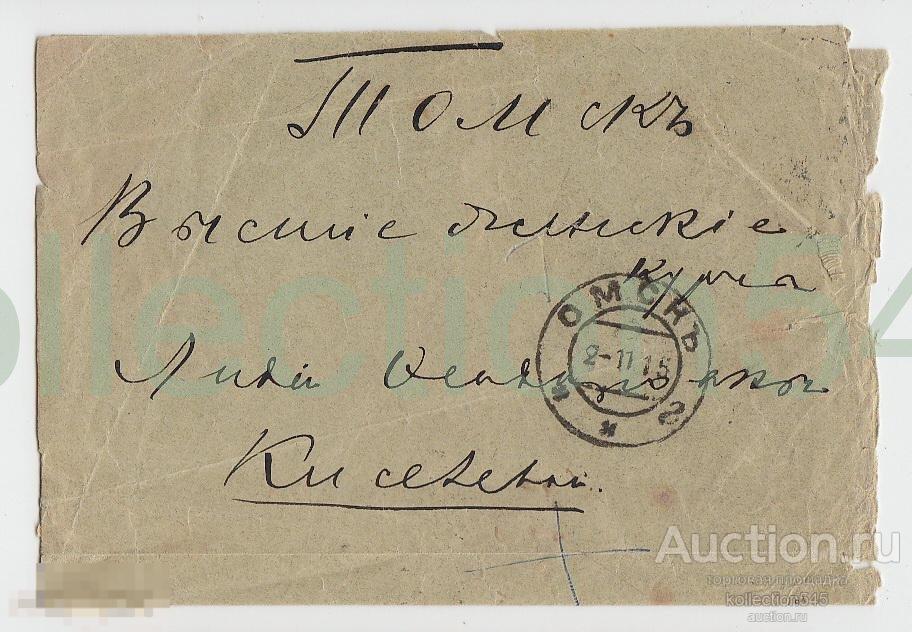 Томскъ
Высшіе женскіе
курсы
Лидіи
Киселевой.
ОМСКЪ
2-11 15
2
collection54
Auction.ru
торговая площадка
kollection545
auction.ru